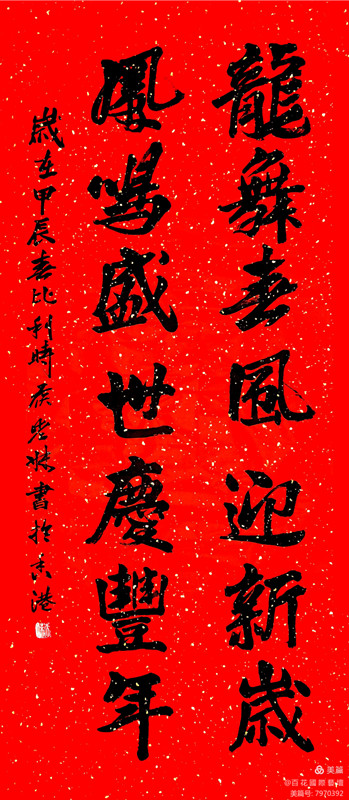 龍舞春風迎新歲
鳳鳴盛世慶豐年
歲在甲辰春比利時
書於香港
美篇
@百花國際藝壇
美篇号: 7970392